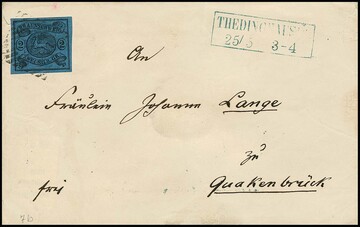 THEDINGHAUSEN
25/ 3-4
An
Fräulein Johanne Lange
zu
frei
Quakenbrück